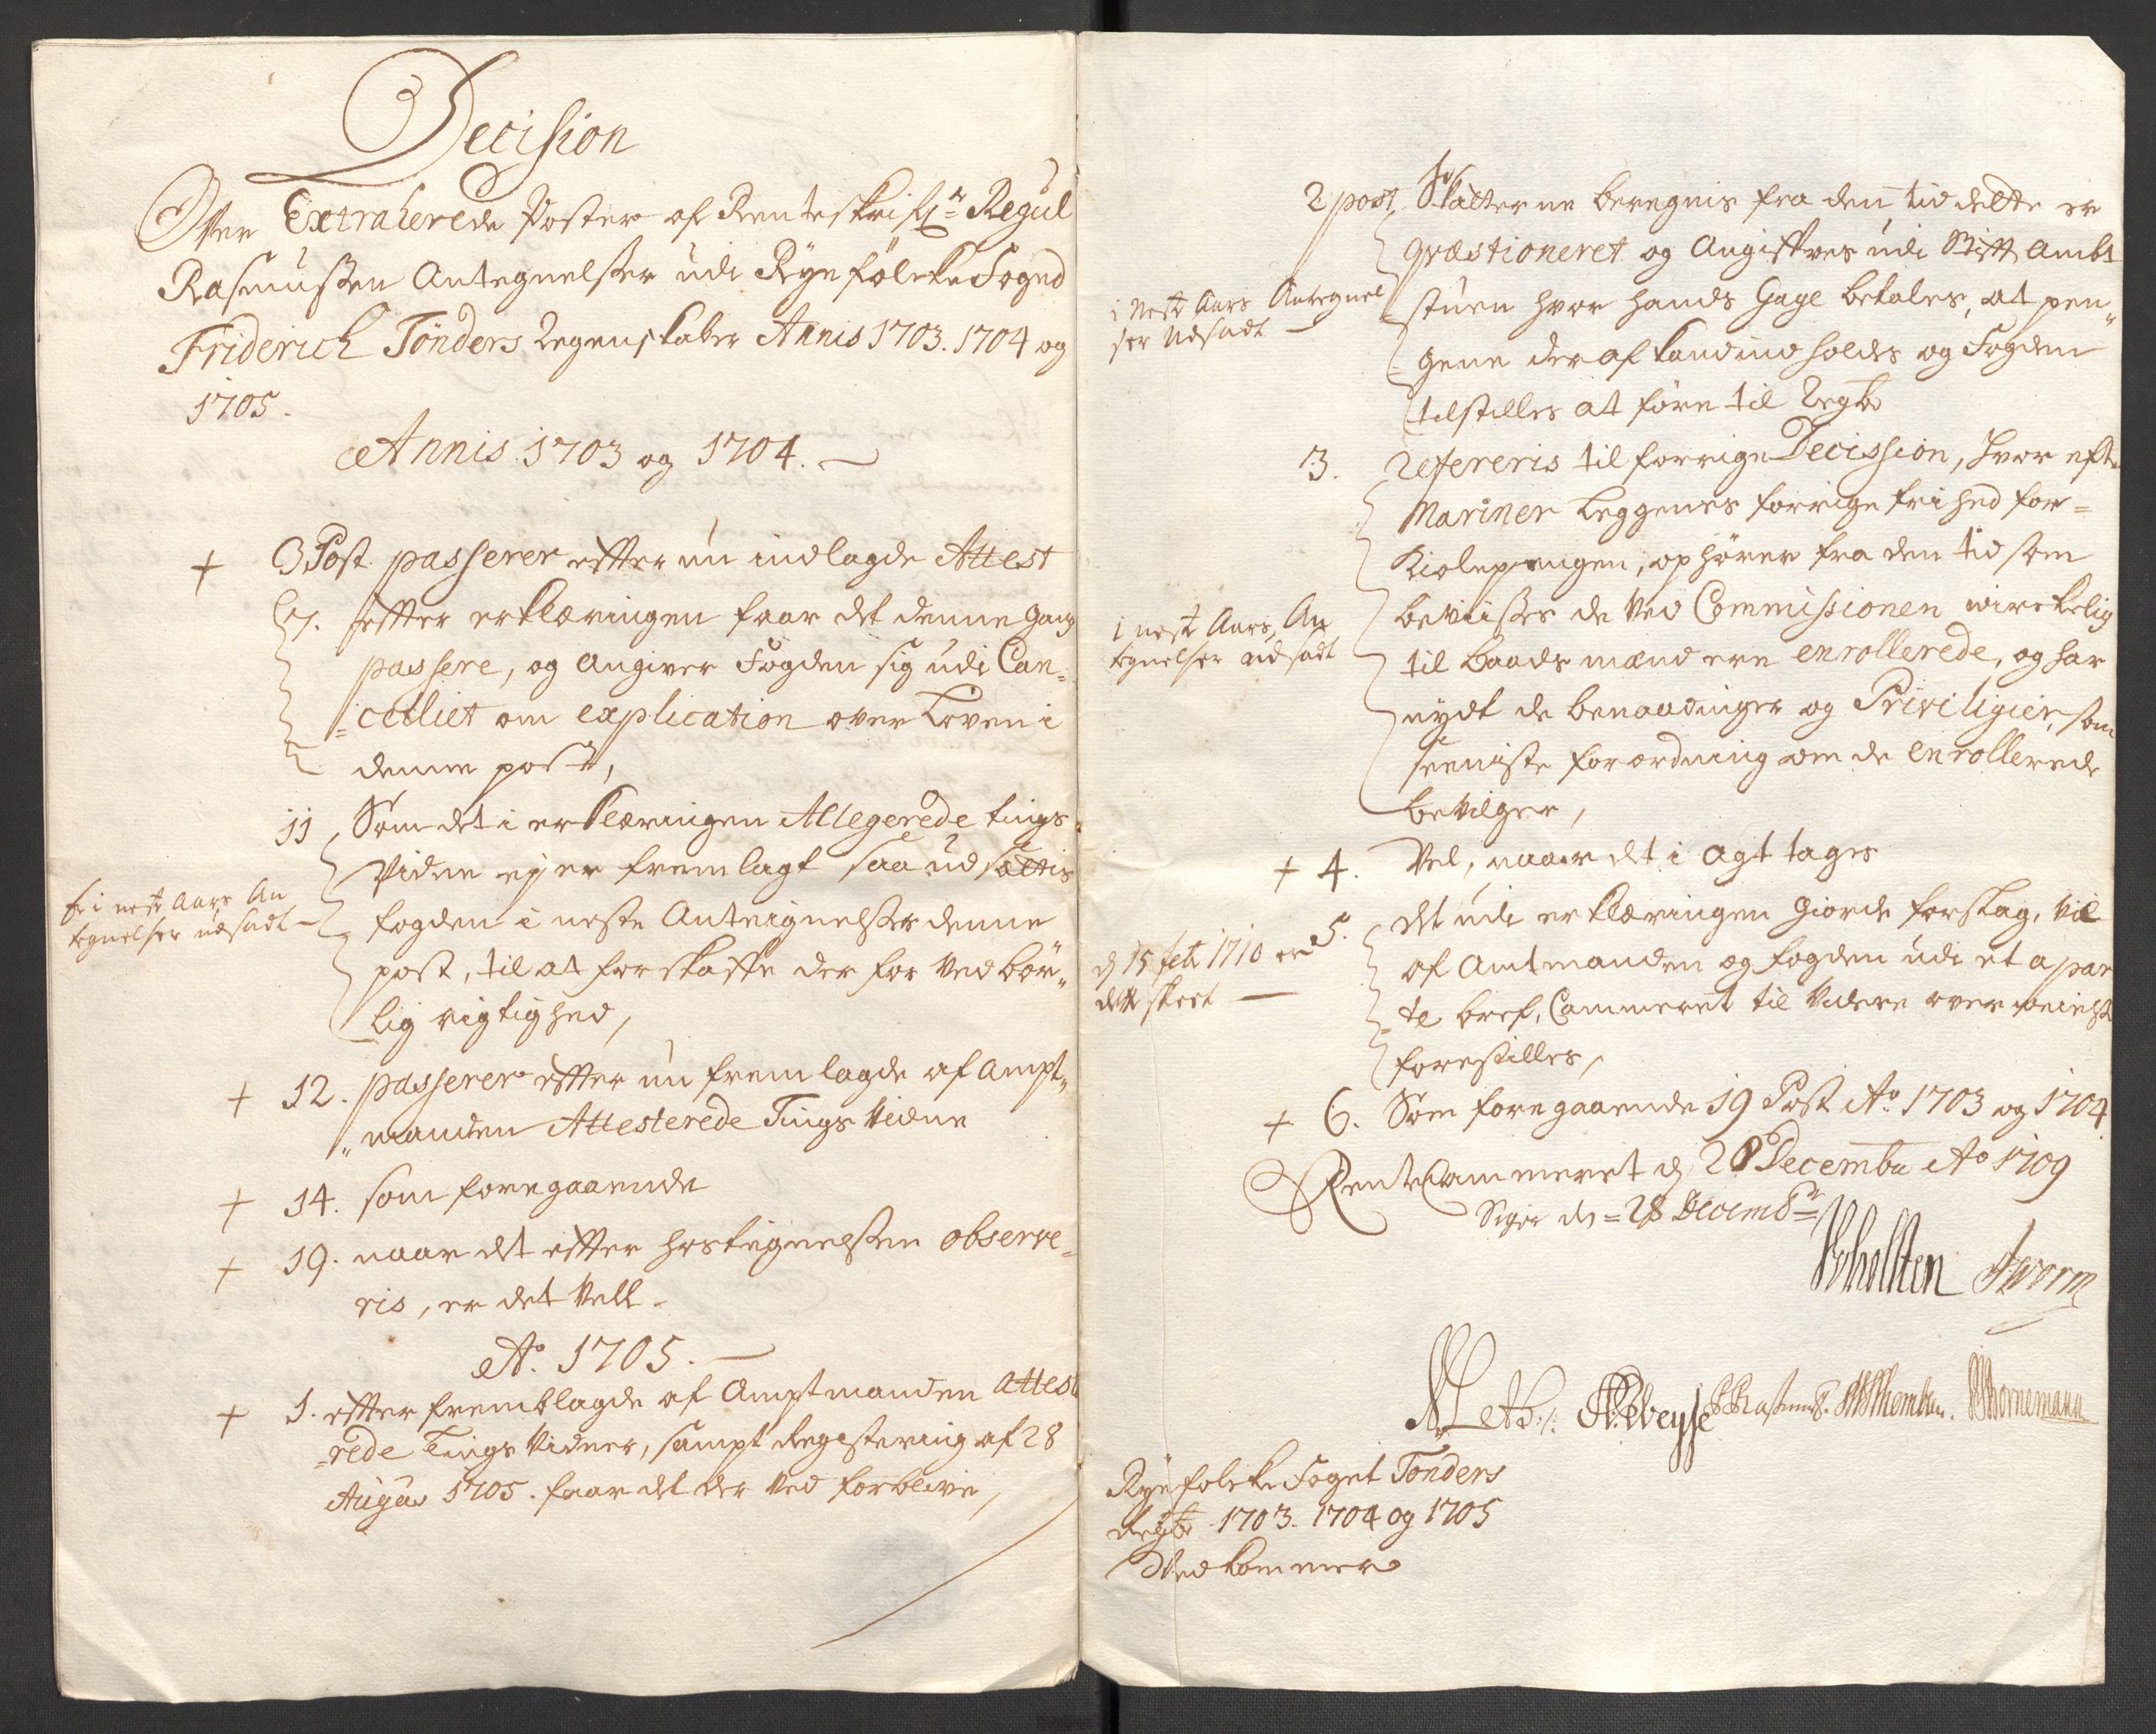 Decision
Over Extraherede Poster af Renteskrifr Regul
Rasmussen Antegnelser udi Ryefölcke Fogd
Friderich Tönders Regenskaber Annis 1703. 1704 og
1705.
Annis 1703 og 1704.
+ 3 Post. passerer effter nu indlagde Attest
7. effter erklæringen faar det denne gang
passere, og angiver Fogden sig udi Can=
=celliet om explication over loven i
denne post,
11, Som det i erklæringen Allegerede tings
Vidne ej er fremlagt saa udsættis
fogden i neste Anteignelser denne
post, til at forskaffe der for ved bör„
lig rigtighed,
Er i neste Aars An
tegnelser udsadt
+ 12. passerer effter nu fremlagde af Ampt„
„manden Attesterede Tings Vidne
+ 14. som foregaaende
+ 19. naar det effter hostegnelsen observe=
ris, er det Vell.
Ao. 1705.
+ 1. effter fremblagde af Amptmanden Attest
=rede Tings Vidner, sampt Registering af 28
Augus 1705. faar det der ved forblive,
2 post, Skatterne beregnis fra den tid dette er
qvæstioneret og Angiftves udi Stift Ambt
stuen hvor hands Gage betales, at pen„
gene deraf kand indholdes og Fogden
tilstilles at före til Regb
i neste Aars Antegnel
ser udsadt
3. Refereris til forrige Decission, hvor efter
Mariner Leggenes forrige frihed for=
Kiolepengen, ophører fra den tid som
bevises de ved Commissionen wirckelig
til baads mænd ere enrollerede, og har
nydt de benaadninger og Priviligier, som
seeniste forordning om de enrollerede
bevilger,
i nest Aars, An
tegnelser udsadt
+ 4. Vel, naar det i agt tages
5. det udi erklæringen giorde forslag, vil
af Amtmanden og fogden udi et apar
=te bref, Cammeret til videre overveielse
forestilles,
d 15 feb 1710 er
dette skeet
+ 6. Som foregaaende 19 Post Ao. 1703 og 1704
RenteCammeret d, 28 Decembr Ao 1709
Siger den = 28 Decembr
Worm
Meth: Bornemann
Ryefolcke Foget Tonders
Regb 1703. 1704 og 1705
Vedkommer